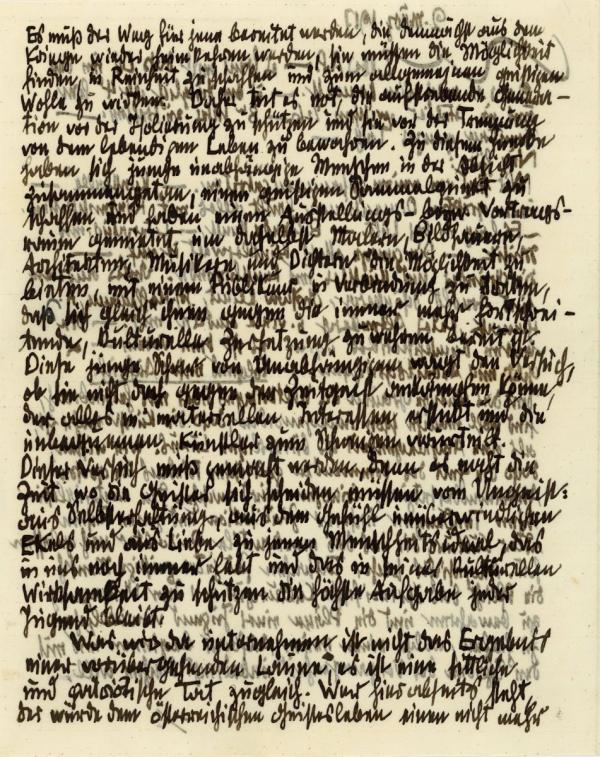 Es muß der Weg für jene bereitet werden, die demnächst aus dem
Kriege wieder heimkehren werden, sie müssen die Möglichkeit
finden, in Reinheit zu schaffen und zum allgemeinen geistigen
Wohle zu wirken. Daher tut es not, die aufstrebende Genera-
tion vor der Isolierung zu schützen und sie vor der Trennung
von dem lebendigen Leben zu bewahren. Zu diesem Zwecke
haben sich junge unabhängige Menschen in der Absicht
zusammengetan, einen geistigen Sammelpunkt zu
schaffen und haben einen Ausstellungs- bezw. Vortrags-
raum gemietet, um daselbst Malern, Bildhauern,
Architekten, Musikern und Dichtern die Möglichkeit zu
bieten, mit einem Publikum in Verbindung zu treten,
daß sich gleich ihnen gegen die immer mehr fortschrei-
tende, kulturelle Zersetzung zu wehren bereit ist.
Diese junge Schar von Unabhängigen wagt den Versuch,
ob sie nicht doch gegen den Zeitgeist ankämpfen könne,
der alles in materiellen Interessen erstickt und die
unbequemen Künstler zum Schweigen verurteilt.
Dieser Versuch muß gemacht werden, denn es naht die
Zeit wo die Geister sich scheiden müssen vom Ungeist:
aus Selbsterhaltung, aus dem Gefühl unüberwindlichen
Ekels und aus Liebe zu jenem Menschheitsideal, das
in uns noch immer lebt und das in seiner kulturellen
Wirksamkeit zu schützen die höchste Aufgabe jeder
Jugend bleibt.
Was wir da unternehmen ist nicht das Ergebnis
einer vorübergehenden Laune es ist eine sittliche
und patriotische Tat zugleich. Wer hier abseits steht,
der würde dem österreichischen Geistesleben einen nicht mehr